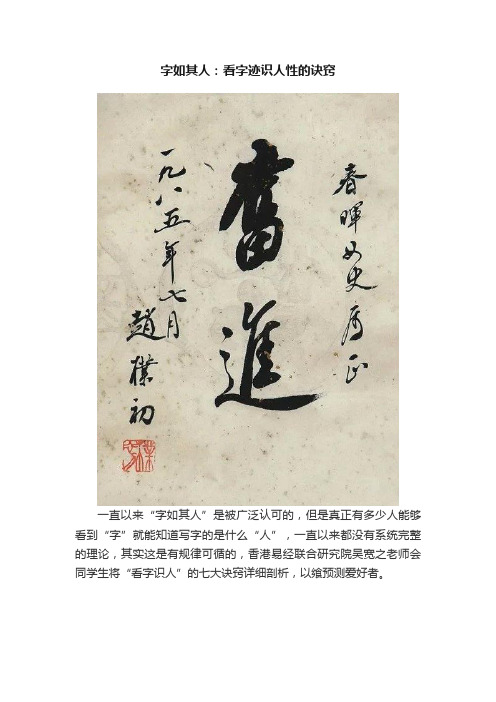 字如其人：看字迹识人性的诀窍
春暉女史屬正
奮進
一九八五年七月
趙樸初
一直以来“字如其人”是被广泛认可的，但是真正有多少人能够
看到“字”就能知道写字的是什么“人”，一直以来都没有系统完整
的理论，其实这是有规律可循的，香港易经联合研究院吴宽之老师会
同学生将“看字识人”的七大诀窍详细剖析，以飨预测爱好者。